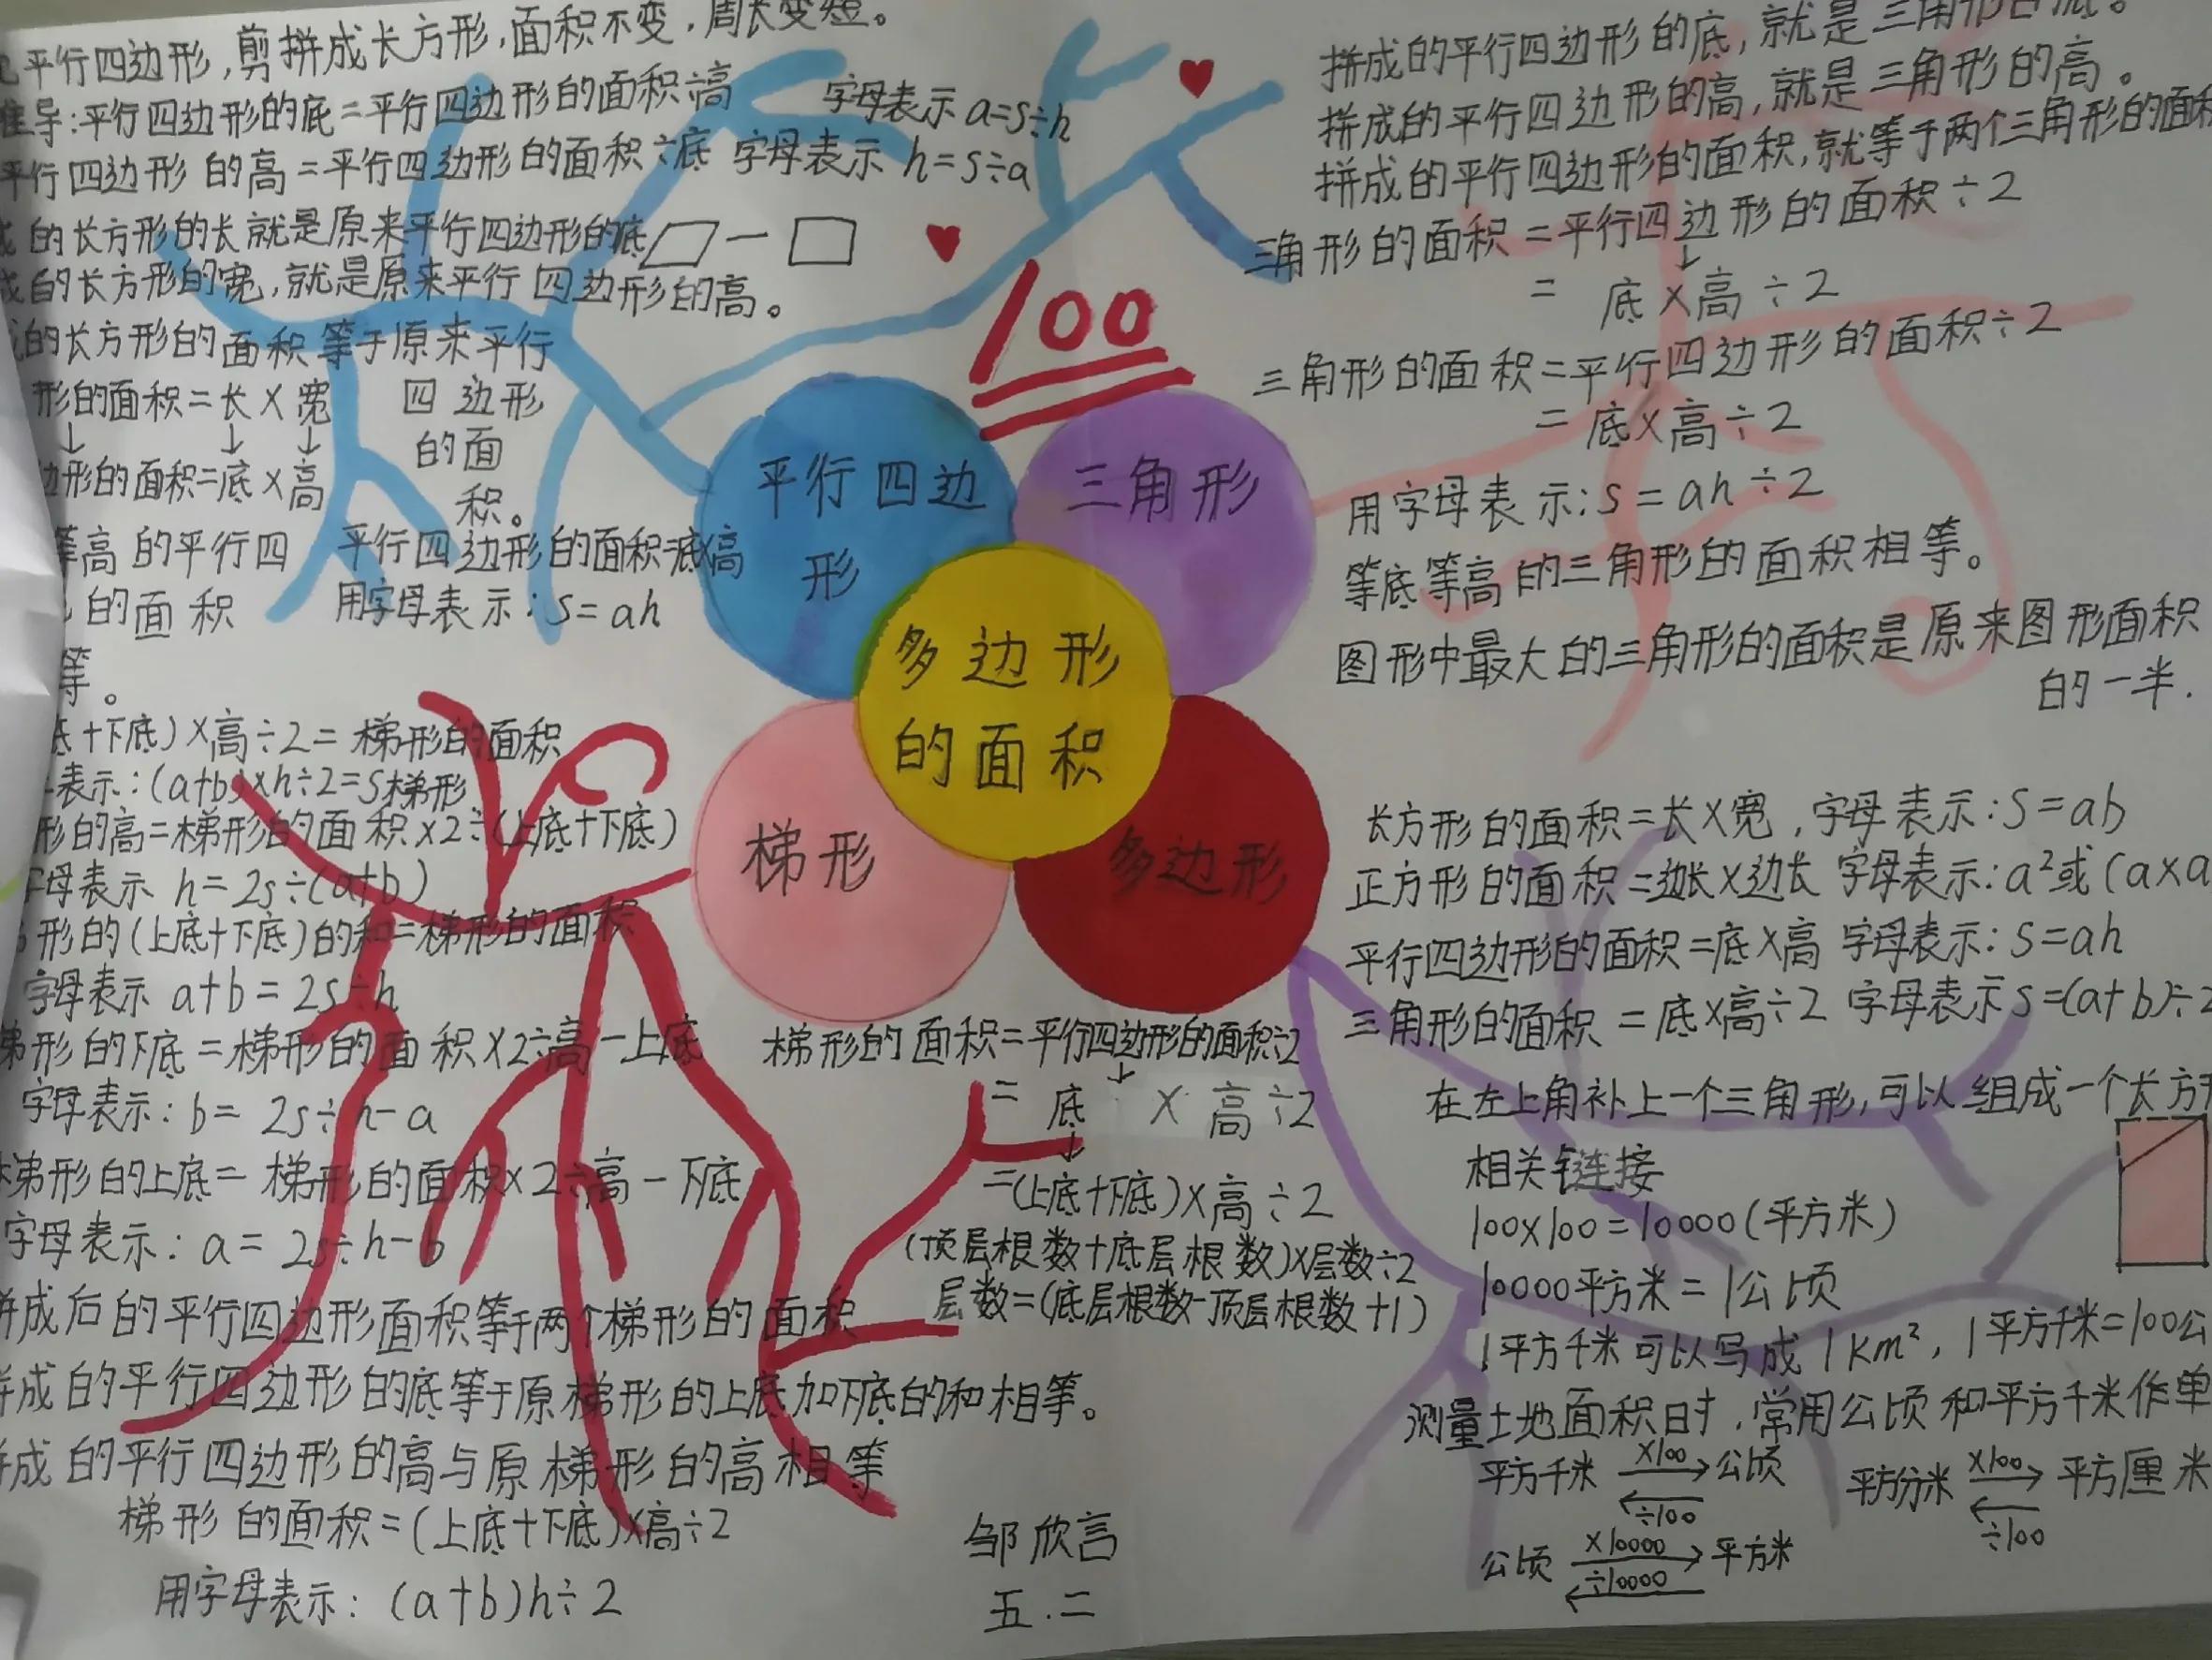 平行四边形,剪拼成长方形,面积不变,周长变短。
推导:平行四边形的底=平行四边形的面积÷高 字母表示 a=s÷h
平行四边形 的高=平行四边形的面积÷底 字母表示 h=s÷a
的长方形的长就是原来平行四边形的底
成的长方形的宽,就是原来平行四边形的高。
的长方形的面积等于原来平行
四边形
的面
积。
形的面积=长×宽
边形的面积=底×高
等高的平行四
的面积
等。
平行四边形的面积=底×高
用字母表示:s=ah
100
平行四边
形
三角形
多边形
的面积
梯形
多边形
拼成的平行四边形的底,就是三角形的底。
拼成的平行四边形的高,就是三角形的高。
拼成的平行四边形的面积,就等于两个三角形的面积
三角形的面积=平行四边形的面积÷2
= 底×高÷2
三角形的面积=平行四边形的面积÷2
= 底×高÷2
用字母表示:s=ah÷2
等底等高的三角形的面积相等。
图形中最大的三角形的面积是原来图形面积
的一半.
底+下底)×高÷2=梯形的面积
表示:(a+b)×h÷2=s梯形
形的高=梯形的面积×2÷(上底+下底)
字母表示 h=2s÷(a+b)
形的(上底+下底)的和=梯形的面积
字母表示 a+b=2s÷h
梯形的下底=梯形的面积×2÷高-上底
字母表示:b= 2s÷h-a
梯形的上底=梯形的面积×2÷高-下底
字母表示:a= 2s÷h-b
拼成后的平行四边形面积等于两个梯形的面积
拼成的平行四边形的底等于原梯形的上底加下底的和相等。
拼成的平行四边形的高与原梯形的高相等
梯形的面积=(上底+下底)×高÷2
用字母表示:(a+b)h÷2
梯形的面积=平行四边形的面积÷2
= 底 × 高÷2
=(上底+下底)×高÷2
(顶层根数+底层根数)×层数÷2
层数=(底层根数-顶层根数+1)
邹欣言
五.二
长方形的面积=长×宽,字母表示:S=ab
正方形的面积=边长×边长 字母表示:a²或(a×a
平行四边形的面积=底×高 字母表示:s=ah
三角形的面积=底×高÷2 字母表示s=(a+b)÷2
在左上角补上一个三角形,可以组成一个长方形
相关链接
100×100=10000(平方米)
10000平方米=1公顷
1平方千米可以写成1km²,1平方千米=100公
测量土地面积时,常用公顷和平方千米作单
平方千米 ×100 ÷100 公顷 平方分米 ×100 ÷100 平方厘米
公顷 ×10000 ÷10000 平方米